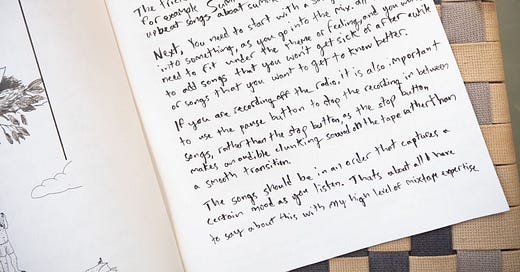 for example Sum
upbeat songs about sum
Next, You need to start with a song
into something, as you go into the mix. all
need to fit under the theme or feeling, and you want
to add songs that you won't get sick of after awhile
or songs that you want to get to know better.
If you are recording off the radio it is also important
to use the pause button to stop the recording in between
songs, rather than the stop button, as the stop button
makes an audible clunking sound on the tape rather than
a smooth transition.
The songs should be in an order that captures a
certain mood as you listen. Thats about all I have
to say about this with my high level of mixtape expertise